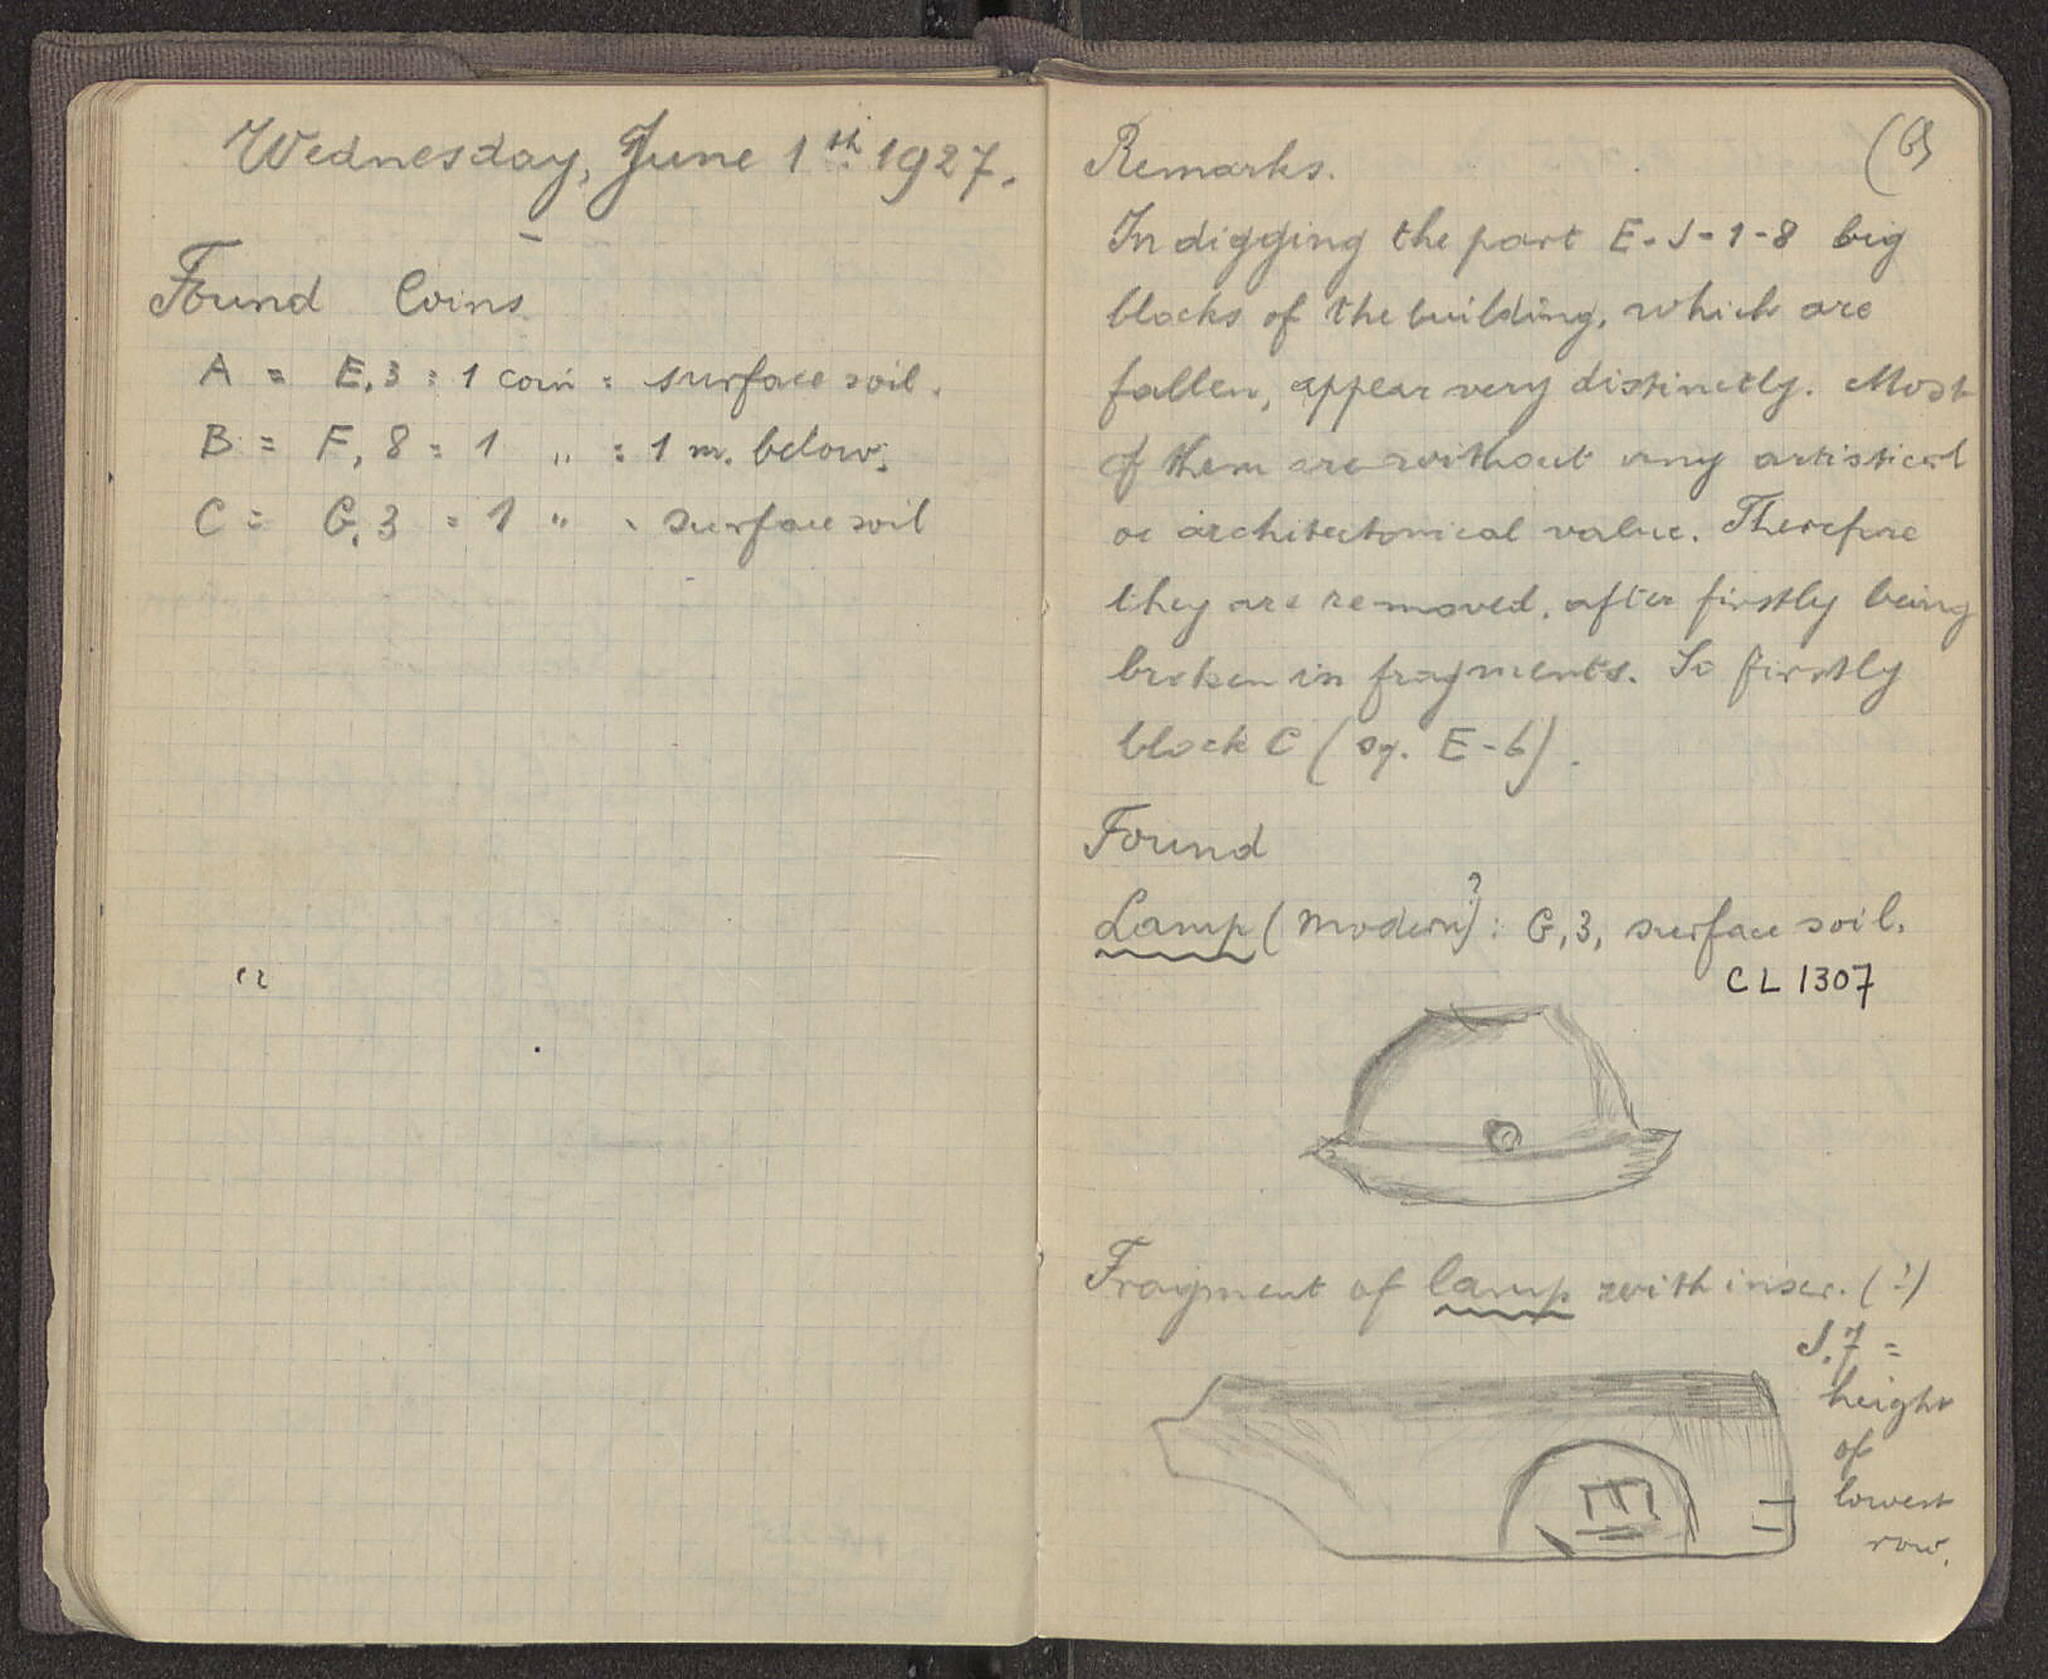 Wednesday, June 1th 1927.
Found Coins
A = E, 3 = 1 coin = surface soil.
B = F, 8 = 1 " = 1 m. below.
C = G, 3 = 1 " - surface soil
Remarks.
In digging the part E-J-1-8 big
blocks of the building, which are
fallen, appear very distinctly. Most
of them are without any artistical
or architectonical value. Therefore
they are removed, after firstly being
broken in fragments. So firstly
block C (sq. E-6).
Found
Lamp (modern?): G,3, surface soil.
CL 1307
Fragment of lamp with inscr. (?)
J.7 =
height
of
lowest
row.